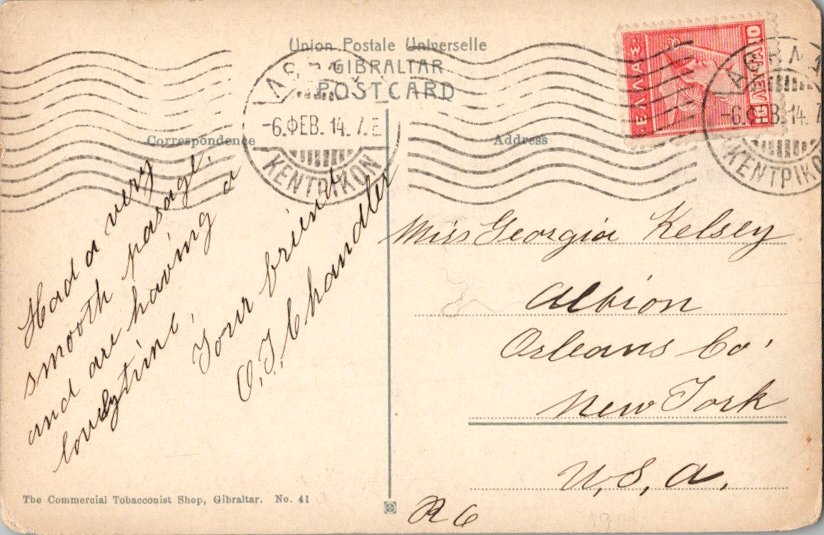 Union Postale Universelle
GIBRALTAR
POSTCARD
Correspondence
Address
ΕΛΛΑΣ
10
10
-6.ΦΕΒ. 14. 7.Ε
ΚΕΝΤΡΙΚΟΝ
-6.ΦΕΒ. 14. 7.
ΚΕΝΤΡΙΚΟΝ
Had a very
smooth pasage.
and are having a
lovely time,
Your friend
O.T. Chandler
Miss Georgia Kelsey
Albion
Orleans Co.
New York
U.S.A.
The Commercial Tobacconist Shop, Gibraltar. No. 41
R 6